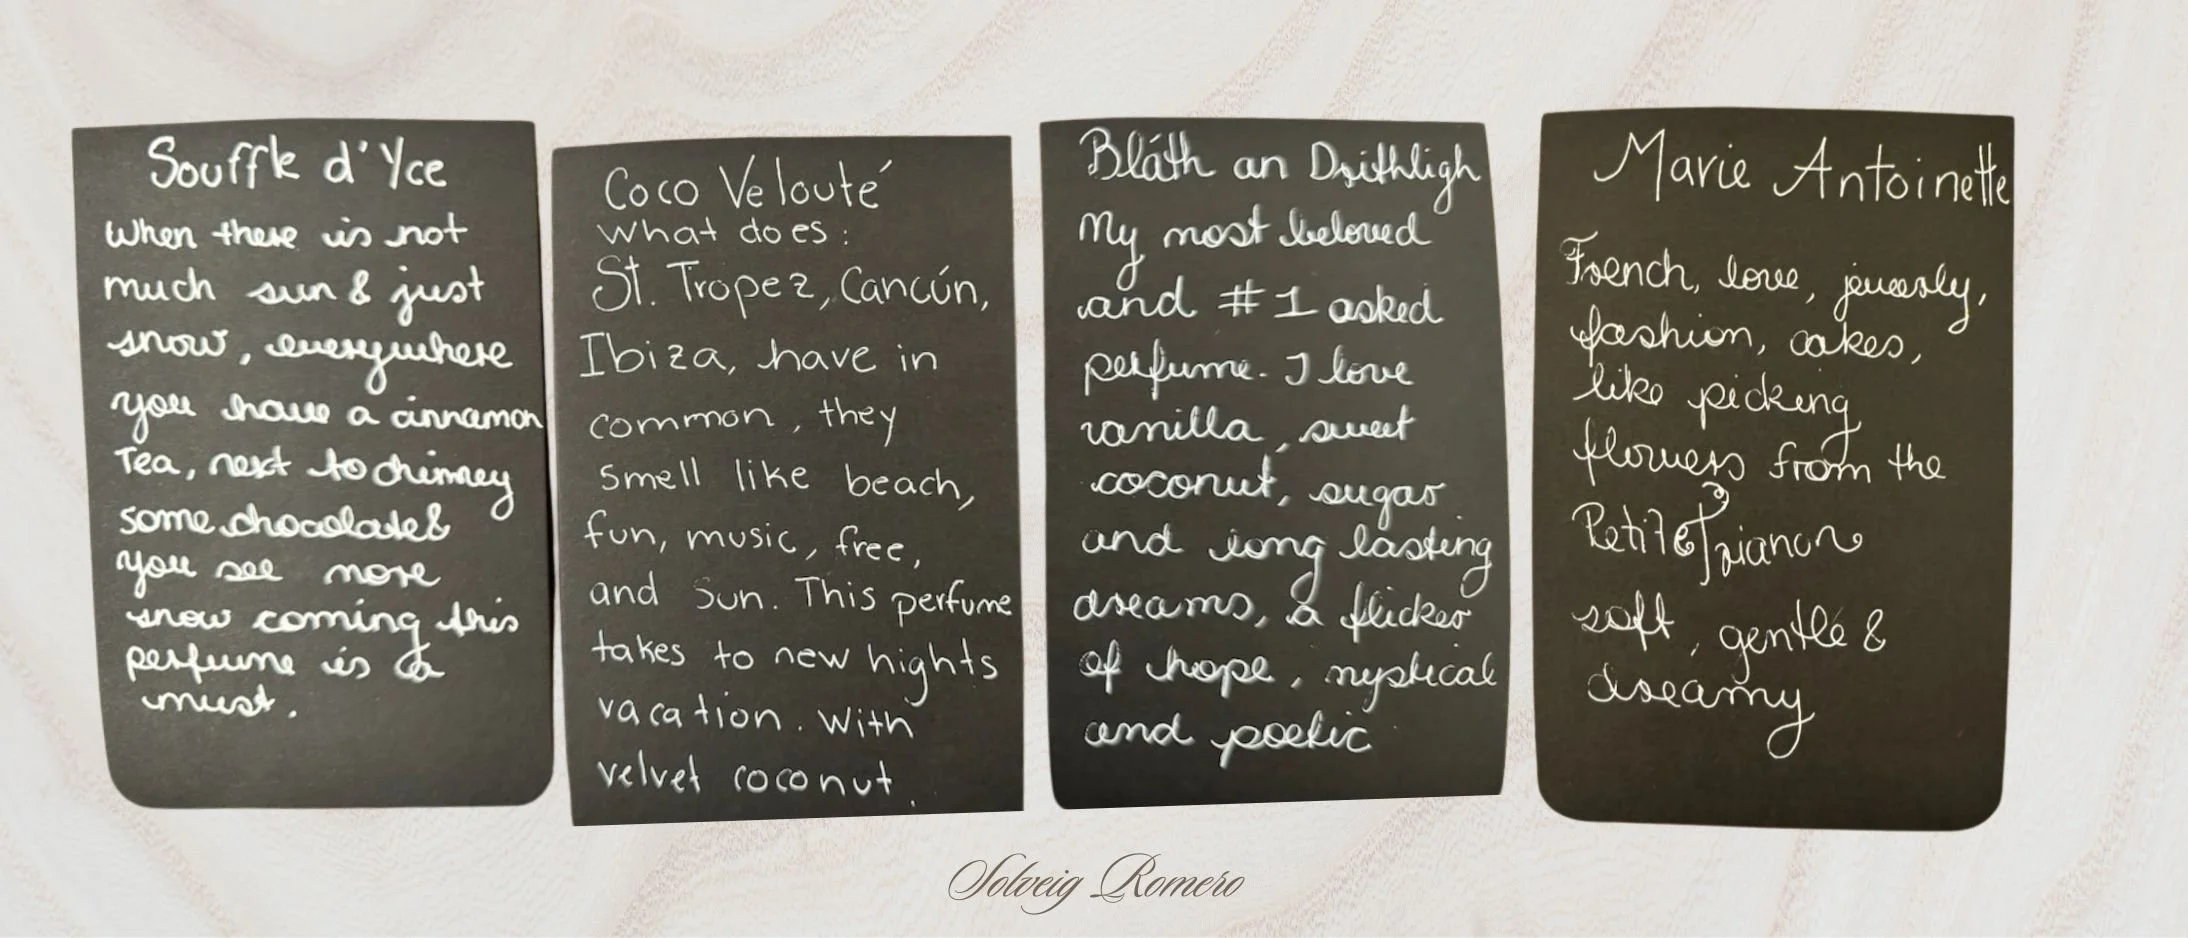 Souffle d'Yce
When there is not
much sun & just
snow, everywhere
you have a cinnamon
Tea, next to chimney
some chocolate &
you see more
snow coming this
perfume is a
must.
Coco Velouté
what does:
St. Tropez, Cancún,
Ibiza, have in
common, they
smell like beach,
fun, music, free,
and Sun. This perfume
takes to new hights
vacation. With
velvet coconut.
Bláth an Drithligh
My most beloved
and #1 asked
perfume. I love
vanilla, sweet
coconut, sugar
and long lasting
dreams, a flicker
of hope, mystical
and poetic
Marie Antoinette
French, love,
fashion, cakes,
like picking
flowers from the
Petite Trianon
soft, gentle &
dreamy
Solveig Romero